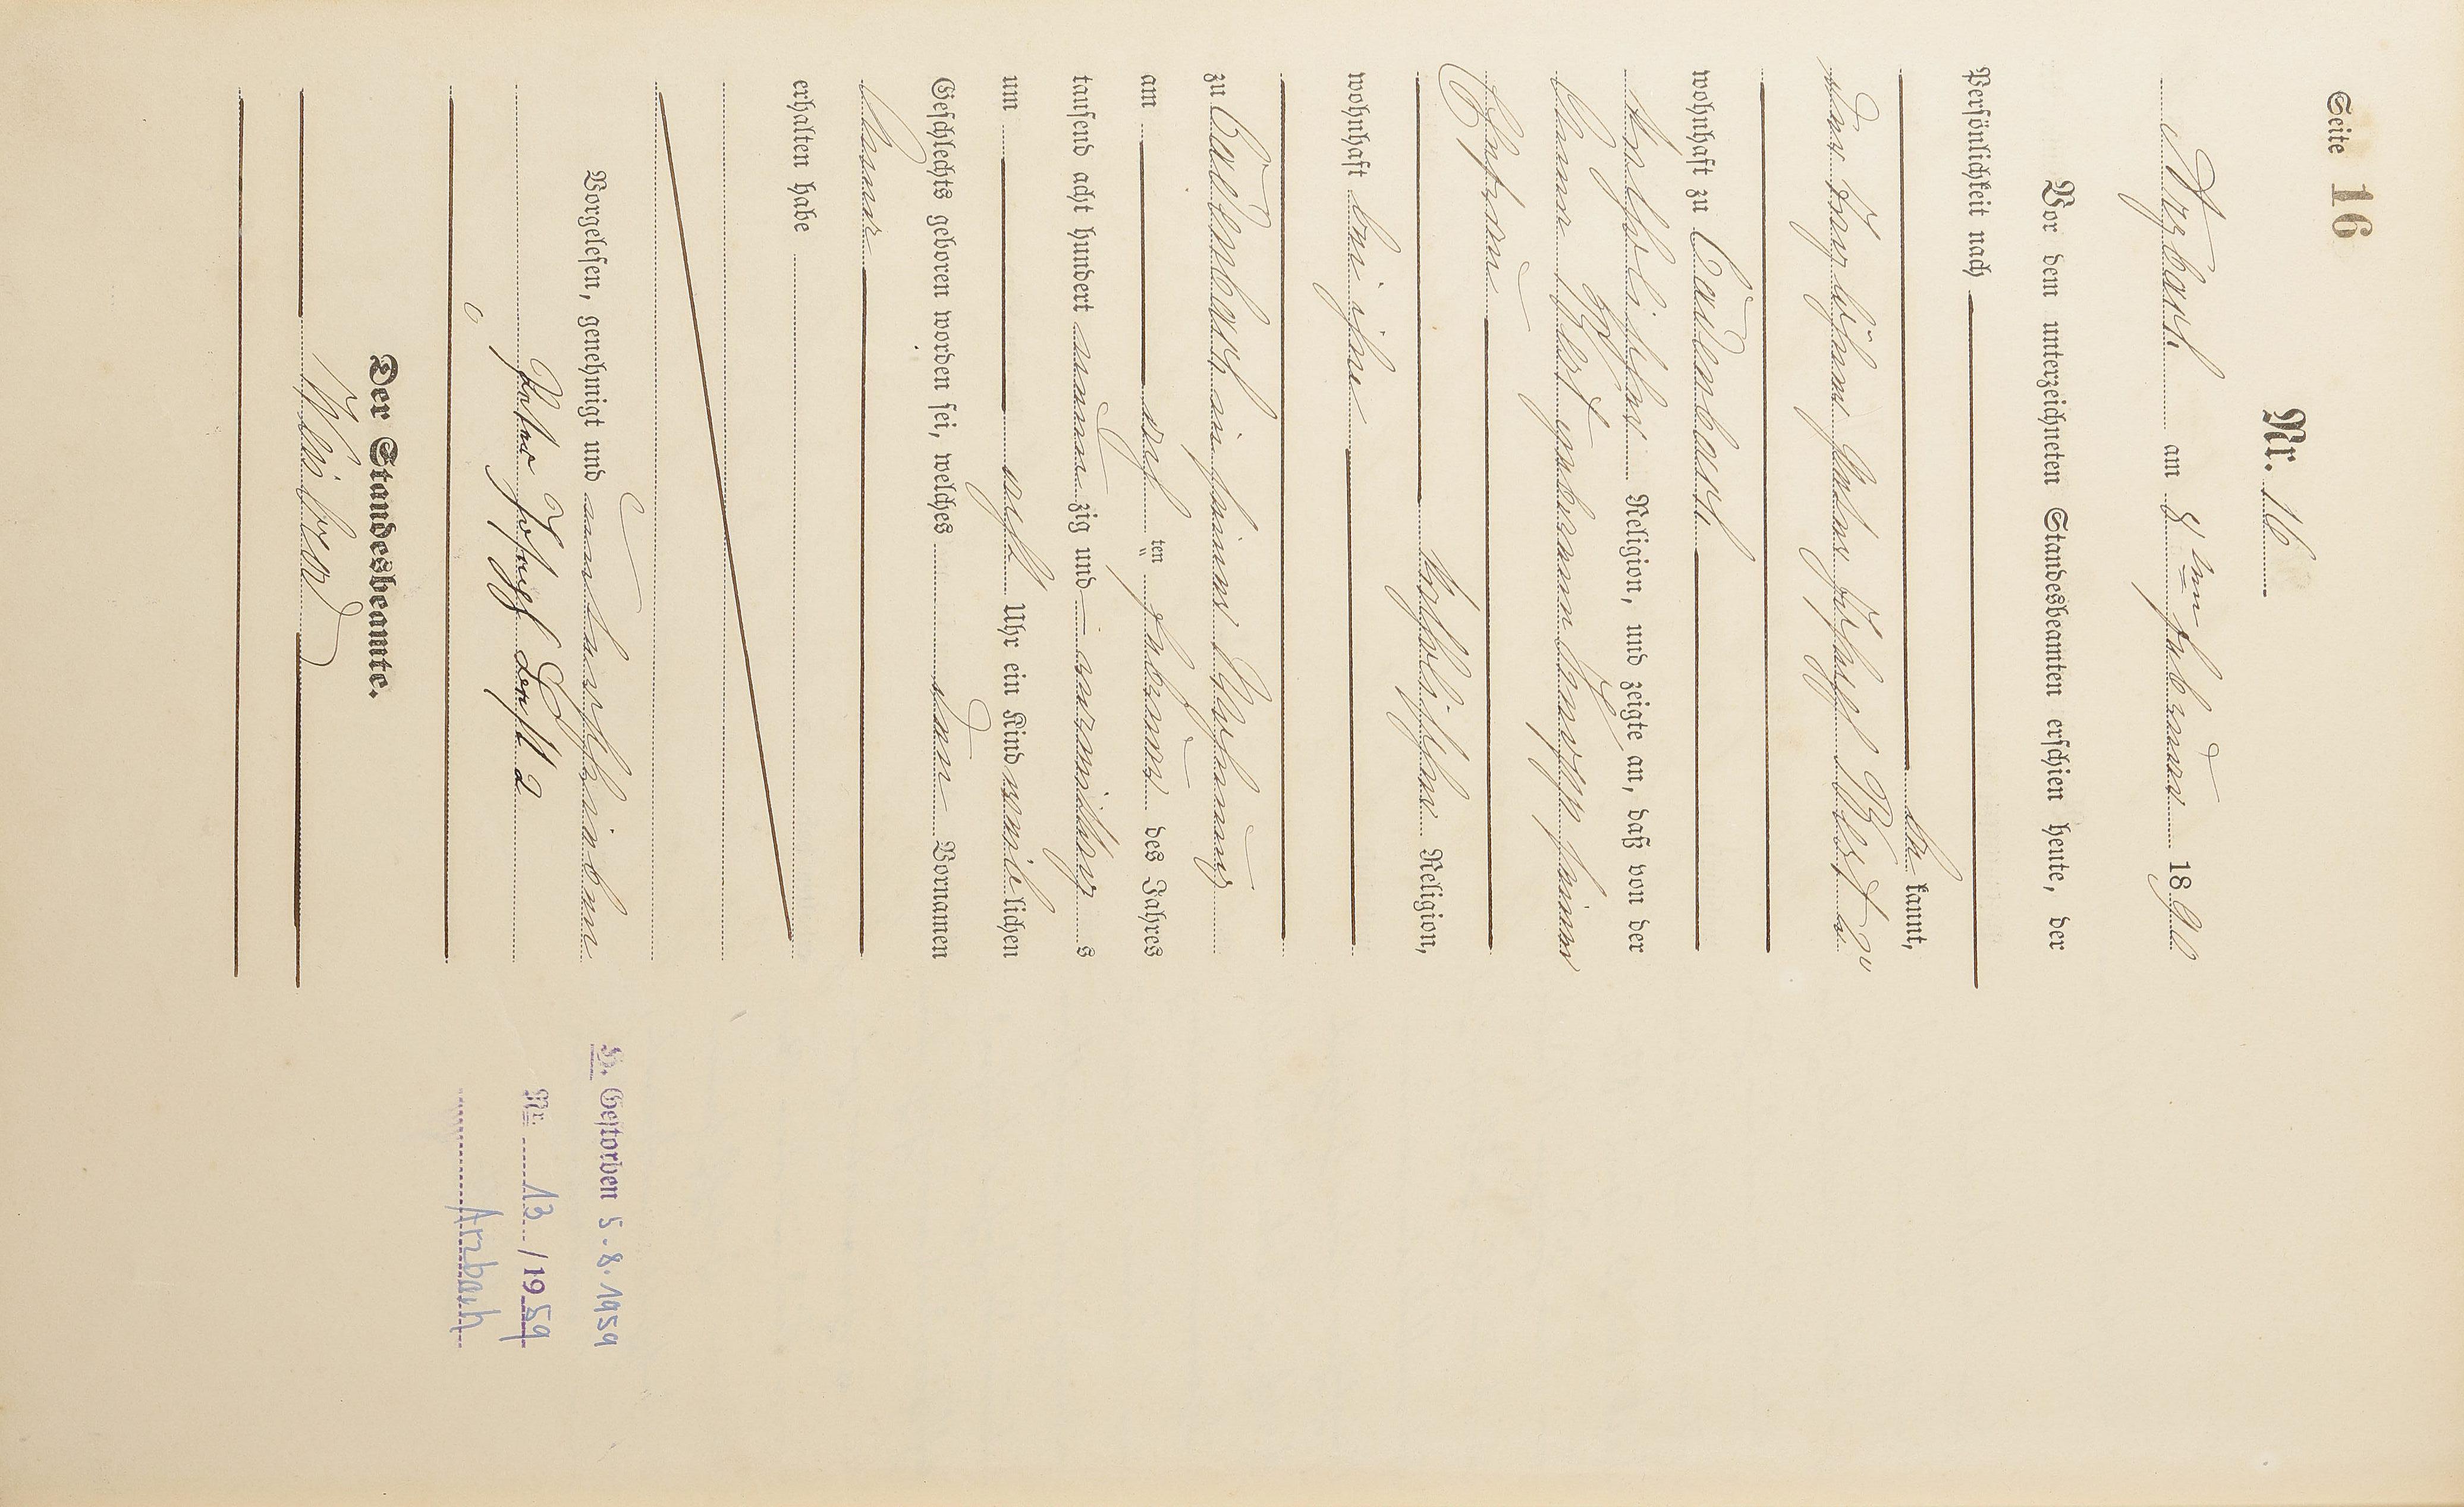 Seite 16
Nr. 16
Arzbach am 8ten Februar 1890
Vor dem unterzeichneten Standesbeamten erschien heute, der
Persönlichkeit nach
be kannt,
der Taglöhner Peter Joseph
wohnhaft zu Cadenbach
katholischer Religion, und zeigte an, daß von der
Anna geborenen seiner
Ehefrau
katholischer Religion,
wohnhaft bei ihm
zu Cadenbach in seiner Wohnung
am acht ten Februar des Jahres
tausend acht hundert neun zig und vormittags
um acht Uhr ein Kind weiblichen
Geschlechts geboren worden sei, welches den Vornamen
Anna
erhalten habe
Vorgelesen, genehmigt und unterschrieben
Peter Joseph
Der Standesbeamte.
H. Gestorben 5.8.1959
Nr. 13 / 1959
Arzbach